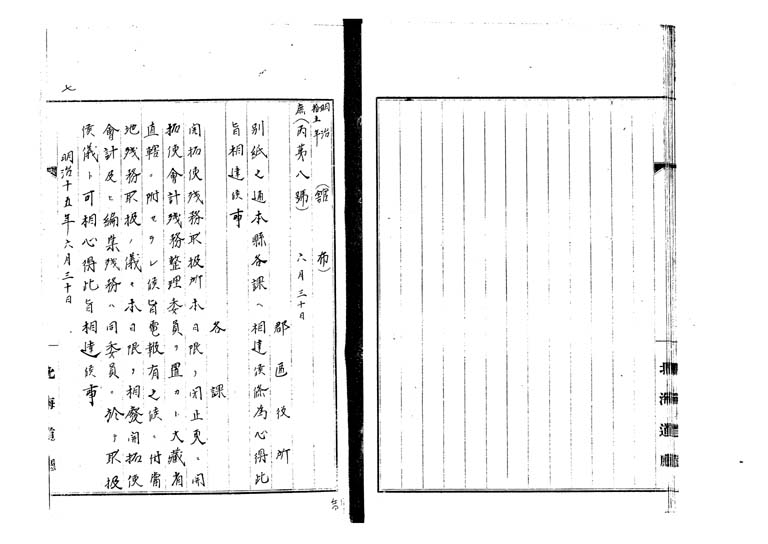 明治
拾五年
（館　布）
庶（丙第八號）　六月三十日
郡區役所
別紙之通本縣各課ヘ相達候條為心得此
旨相達候事
各課
開拓使残務取扱所本日限リ閉止更ニ開
拓使会計残務整理委員ヲ置カレ大藏省
直轄ニ附セラレ候旨電報有之候ニ付當
地残務取扱ノ儀モ本日限リ相廢開拓使
會計及ヒ編集残務ハ同委員ニ於テ取扱
候儀ト可相心得此旨相達候事
明治十五年六月三十日
七
北海道廳
北海道廳